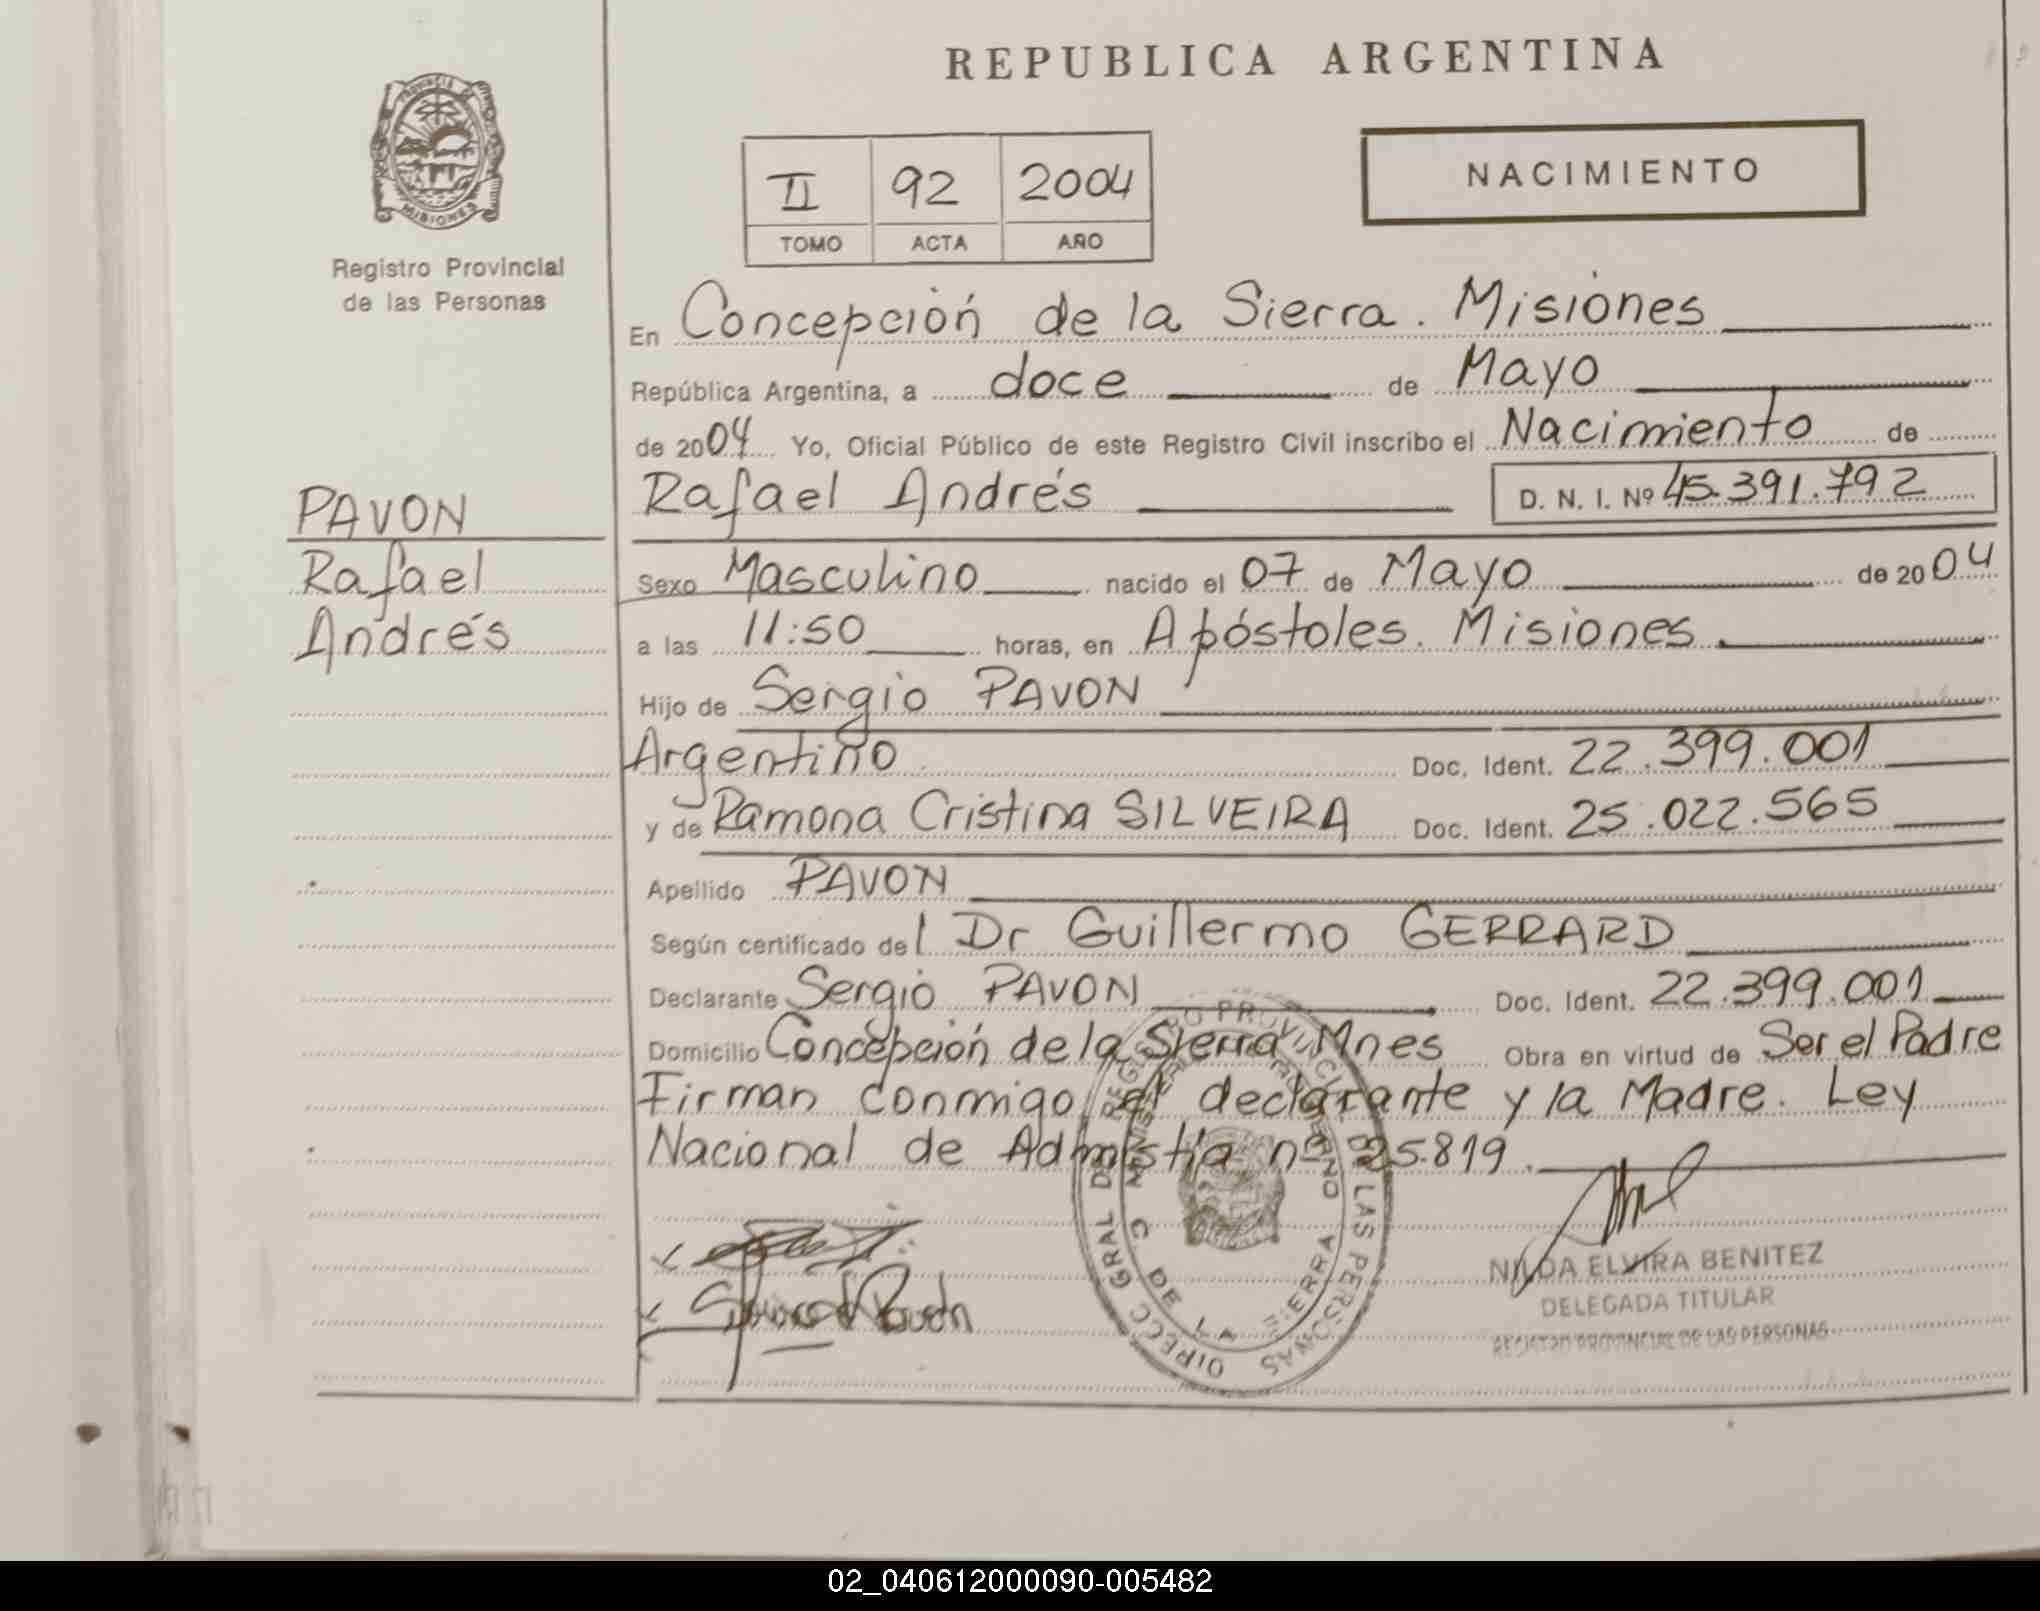 REPUBLICA ARGENTINA
PROVINCIA DE
MISIONES
Registro Provincial
de las Personas
II 92 2004
TOMO ACTA AÑO
NACIMIENTO
En Concepción de la Sierra. Misiones
República Argentina, a doce de Mayo
de 2004 Yo, Oficial Público de este Registro Civil inscribo el Nacimiento de
Rafael Andrés D. N. I. Nº 45.391.792
PAVON
Rafael
Andrés
Sexo Masculino nacido el 07 de Mayo de 2004
a las 11:50 horas, en Apóstoles. Misiones
Hijo de Sergio PAVON
Argentino Doc. Ident. 22.399.001
y de Ramona Cristina SILVEIRA Doc. Ident. 25.022.565
Apellido PAVON
Según certificado del Dr Guillermo GERRARD
Declarante Sergio PAVON Doc. Ident. 22.399.001
Domicilio Concepción de la Sierra Mnes Obra en virtud de Ser el Padre
Firman conmigo el declarante y la Madre. Ley
Nacional de Admistía nº 25.819.
DIRECC GRAL DE REGISTRO PROVINCIAL DE LAS PERSONAS
MINISTERIO DE GOBIERNO
C. DE LA SIERRA
NILDA ELVIRA BENITEZ
DELEGADA TITULAR
REGISTRO PROVINCIAL DE LAS PERSONAS
02_040612000090-005482